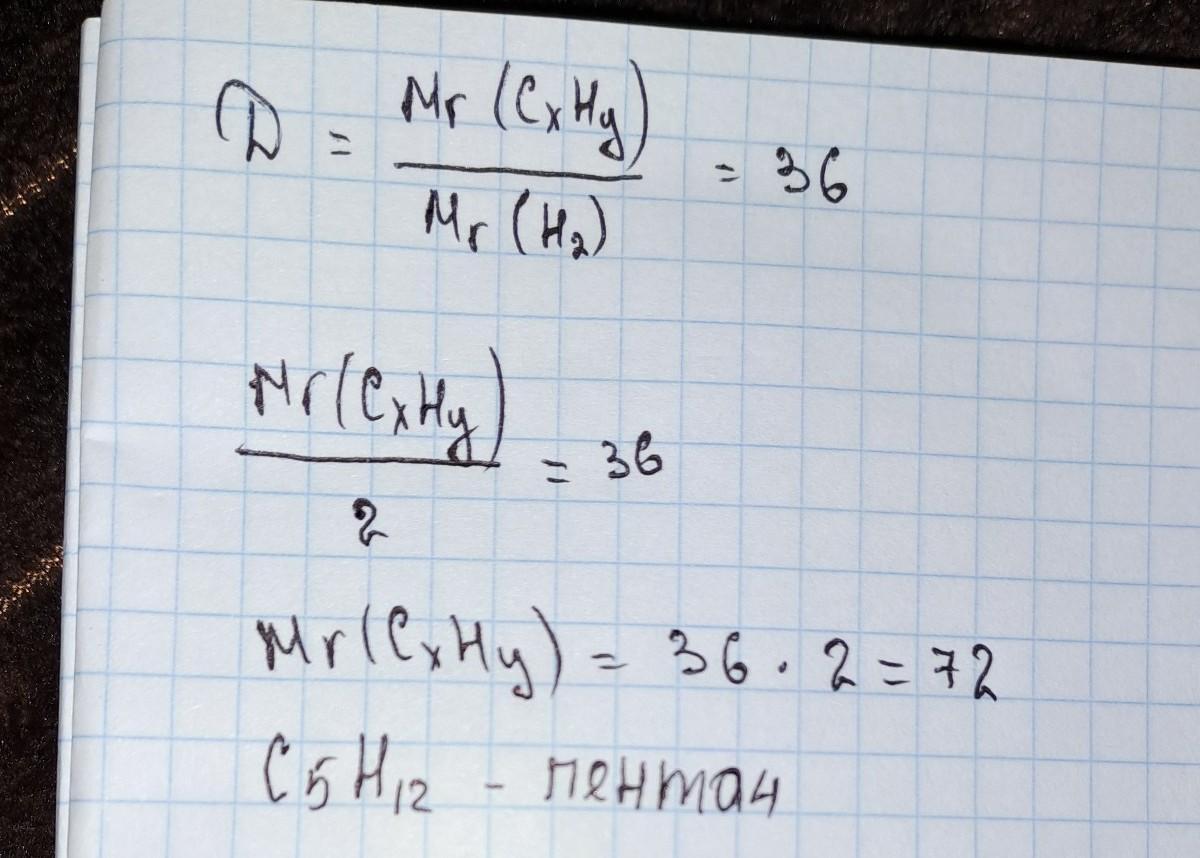 D = Mr (CxHy) / Mr (H2) = 36
Mr(CxHy) / 2 = 36
Mr(CxHy) = 36 · 2 = 72
C5H12 - пентан